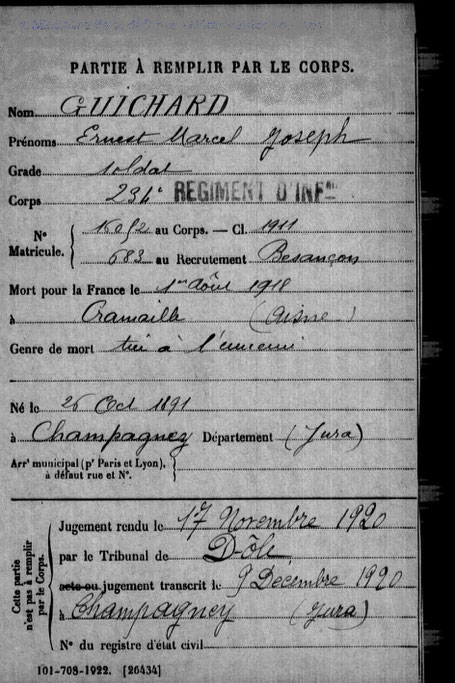 PARTIE À REMPLIR PAR LE CORPS.
Nom GUICHARD
Prénoms Ernest Marcel Joseph
Grade soldat
Corps 23 REGIMENT D'INFie
N° Matricule. au Corps. — Cl. 1911
683 au Recrutement Besançon
Mort pour la France le 1er Août 1918
à Cramaille (Aisne)
Genre de mort tué à l'ennemi
Né le 26 Oct 1891
à Champagney Département (Jura)
Arrt municipal (pr Paris et Lyon), à défaut rue et N°.
Cette partie n'est pas à remplir par le Corps.
Jugement rendu le 17 Novembre 1920
par le Tribunal de Dôle
acte ou jugement transcrit le 9 Décembre 1920
à Champagney (Jura)
N° du registre d'état civil
101-708-1922. [26434]